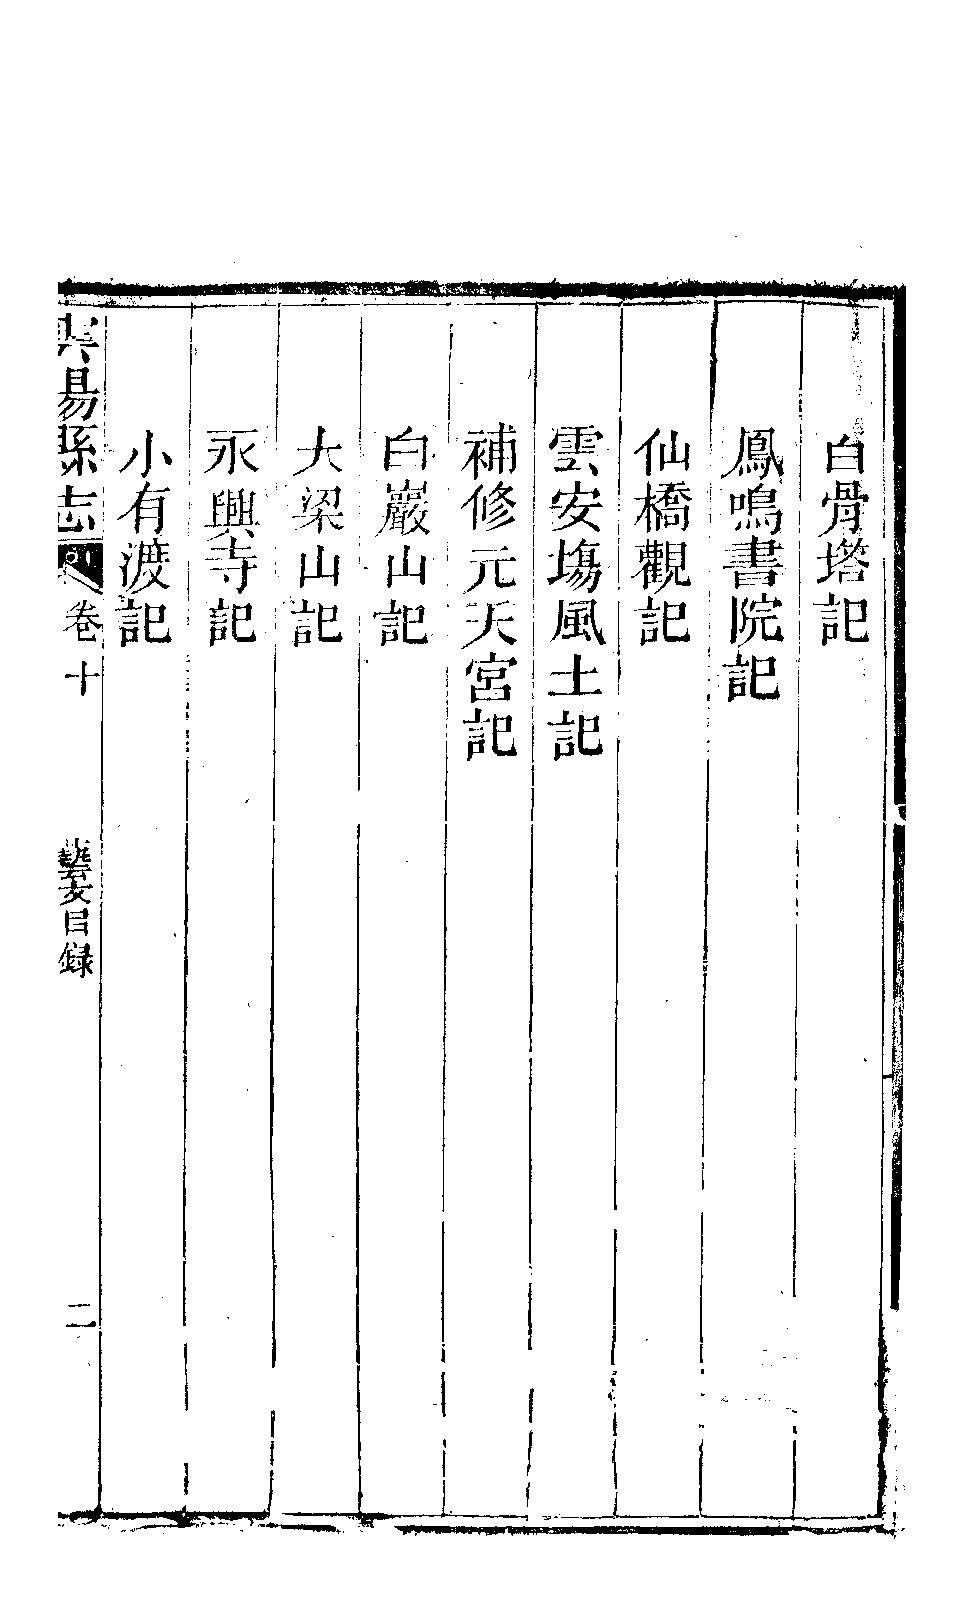 白骨塔記
鳳鳴書院記
仙橋觀記
雲安塲風土記
補修元天宮記
白巖山記
大梁山記
永興寺記
小有渡記
雲陽縣志 卷十 藝文目録 二